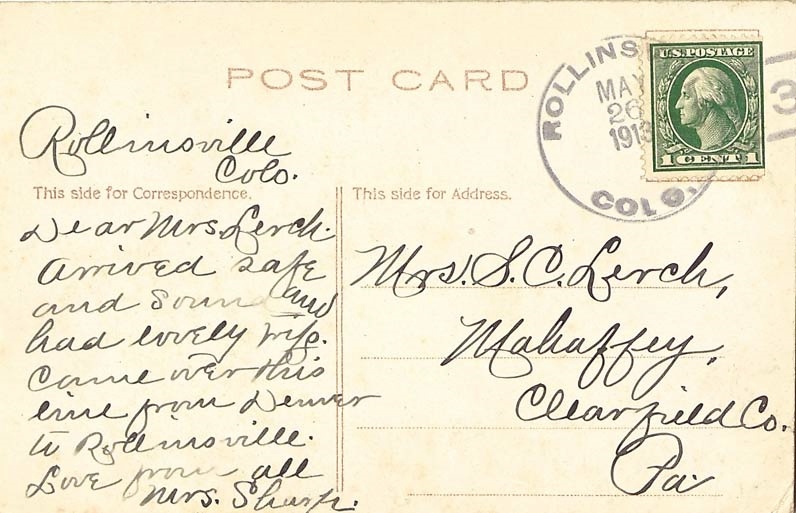 POST CARD
ROLLINS
MAY
26
1913
COLO.
U.S. POSTAGE
1 CENT 1
3
Rollinsville
Colo.
This side for Correspondence.
Dear Mrs. Lerch.
Arrived safe
and sound and
had lovely trip.
Came over this
line from Denver
to Rollinsville.
Love from all
Mrs. Sharp.
This side for Address.
Mrs. S. C. Lerch,
Mahaffey,
Clearfield Co.
Pa.